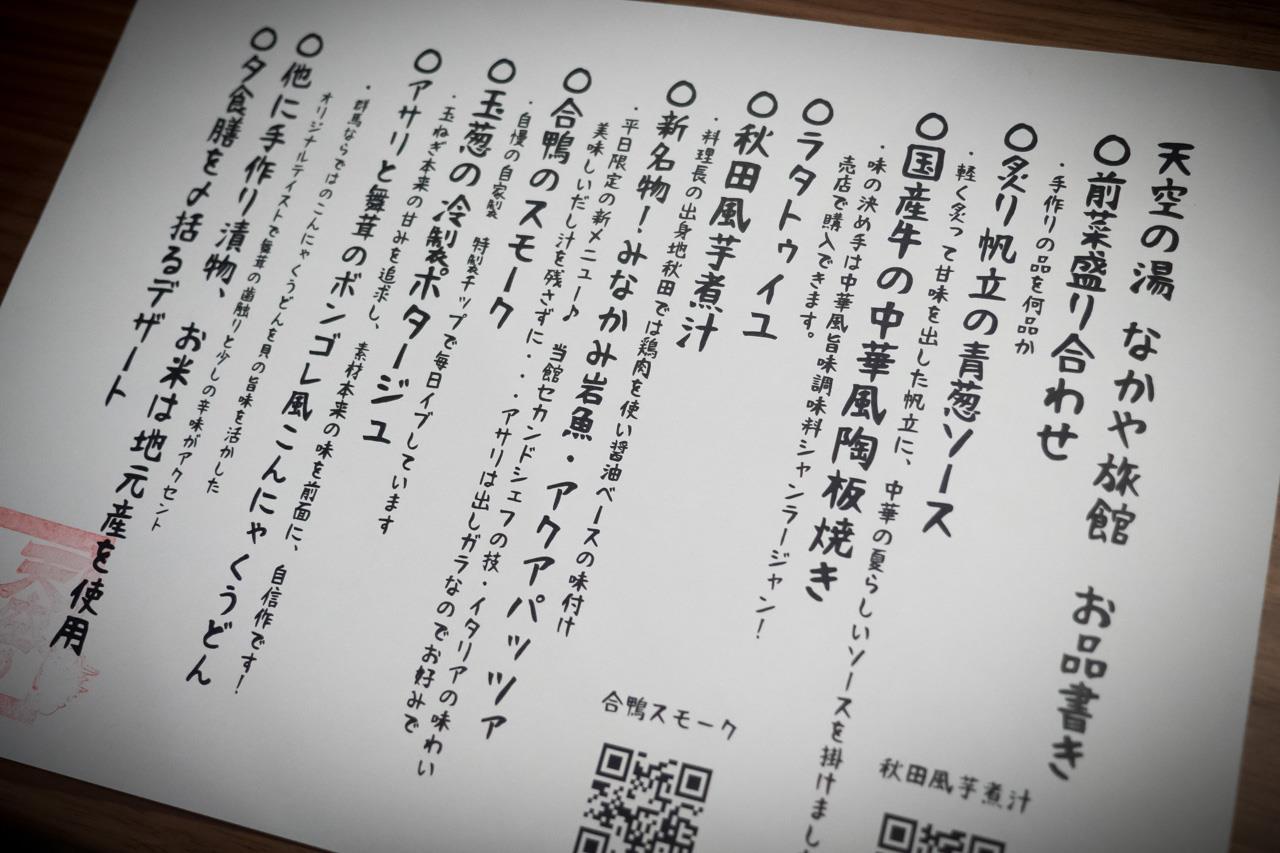 天空の湯 なかや旅館 お品書き
〇前菜盛り合わせ
・手作りの品を何品か
〇炙り帆立の青葱ソース
・軽く炙って甘味を出した帆立に、中華の夏らしいソースを掛けまし
〇国産牛の中華風陶板焼き
・味の決め手は中華風旨味調味料シャンラージャン!
売店で購入できます。
〇ラタトゥイユ
〇秋田風芋煮汁
・料理長の出身地秋田では鶏肉を使い醤油ベースの味付け
〇新名物!みなかみ岩魚・アクアパッツァ
・平日限定の新メニュー♪ 当館セカンドシェフの技・イタリアの味わい
美味しいだし汁を残さずに・・・アサリは出しガラなのでお好みで
〇合鴨のスモーク
・自慢の自家製 特製チップで毎日イブしています
〇玉葱の冷製ポタージュ
・玉ねぎ本来の甘みを追求し、素材本来の味を前面に、自信作です!
〇アサリと舞茸のボンゴレ風こんにゃくうどん
・群馬ならではのこんにゃくうどんを貝の旨味を活かした
オリジナルテイストで舞茸の歯触りと少しの辛味がアクセント
〇他に手作り漬物、お米は地元産を使用
〇夕食膳を〆括るデザート
合鴨スモーク
秋田風芋煮汁